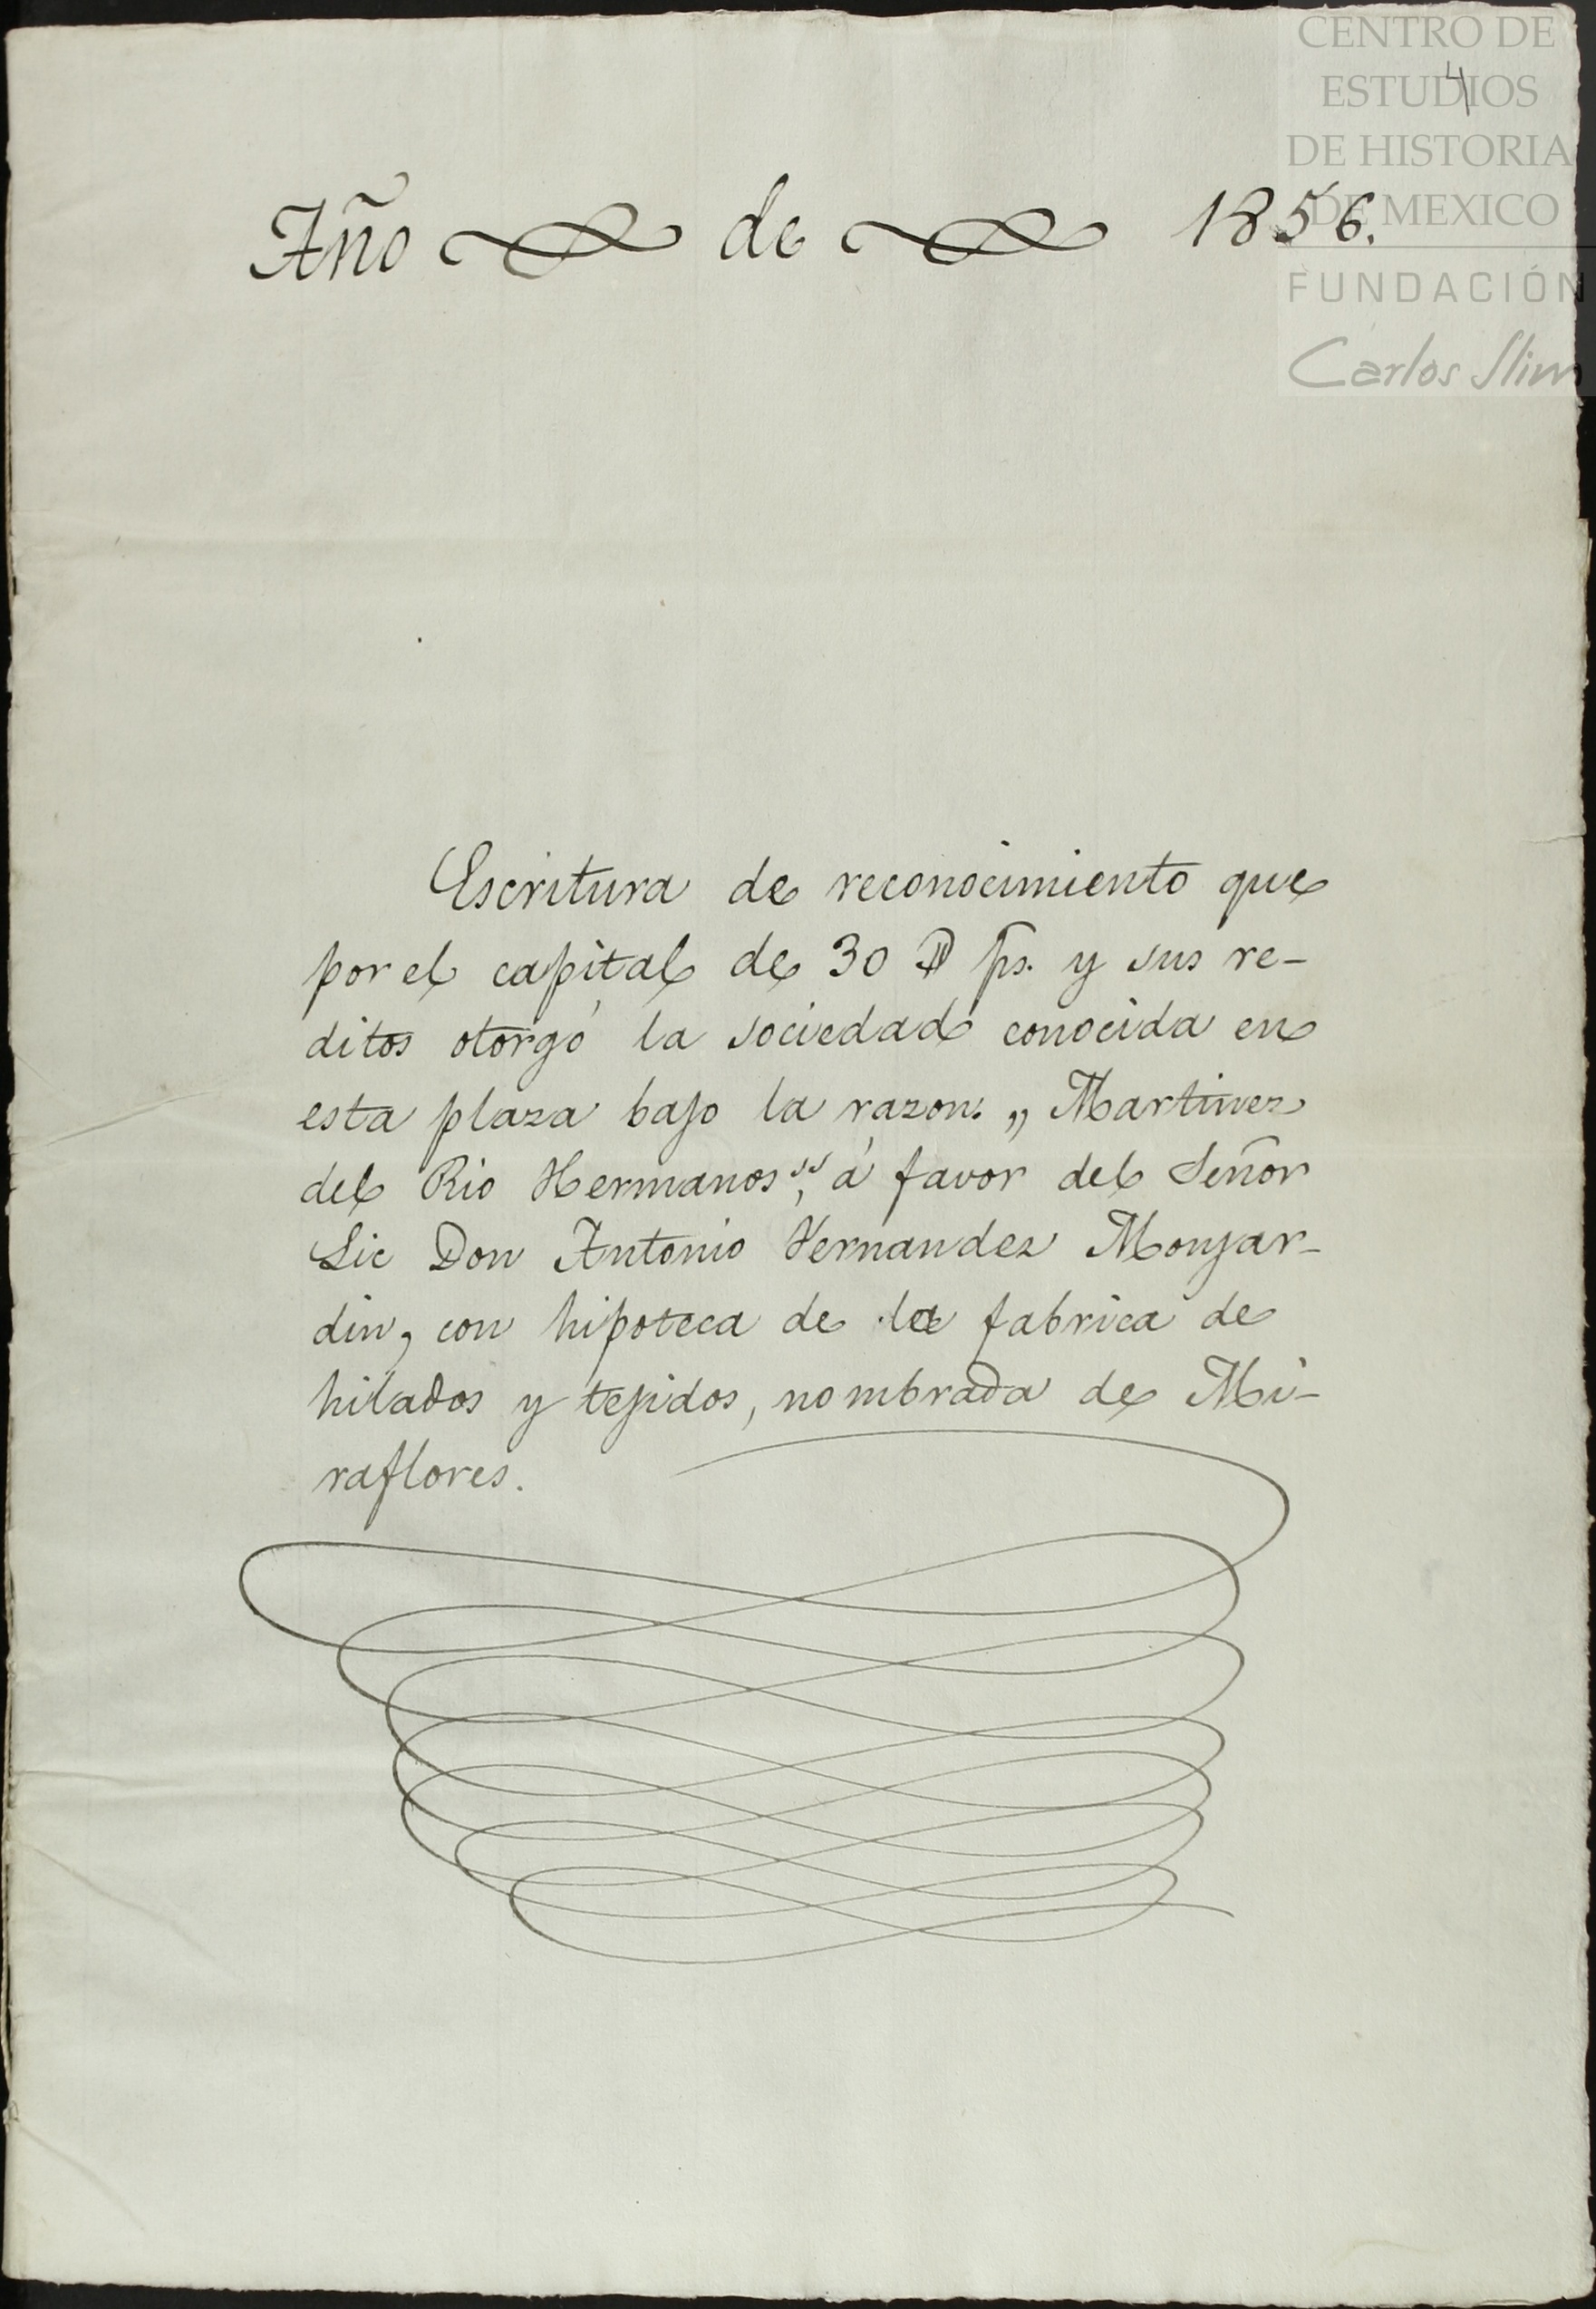 CENTRO DE
ESTUDIOS
DE HISTORIA
DE MEXICO
FUNDACIÓN
Carlos Slim
4
Año de 1856.
Escritura de reconocimiento que
por el capital de 30 ps. y sus re-
ditos otorgó la sociedad conocida en
esta plaza bajo la razon: „Martinez
del Rio Hermanos", á favor del Señor
Lic Don Antonio Fernandez Monjar-
din, con hipoteca de la fabrica de
hilados y tejidos, nombrada de Mi-
raflores.